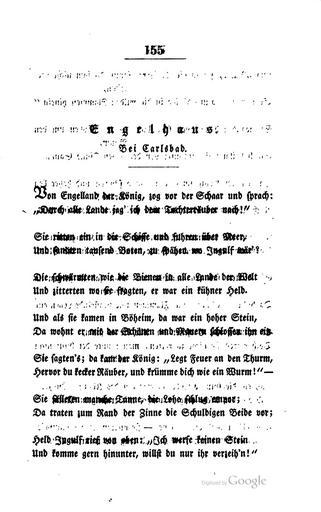 155
Engelhaus
Bei Carlsbad.
Von Engelland der König, zog vor der Schaar und sprach:
„Durch alle Lande jag' ich dem Tochterräuber nach!“
Sie ritten ein in die Schiffe und fuhren über Meer,
Und sandten tausend Boten, zu spähen wo Ingulf wär'?
Die schwärmten wie die Bienen in alle Lande der Welt
Und zitterten wo sie fragten, er war ein kühner Held.
Und als sie kamen in Böheim, da war ein hoher Stein,
Da wohnt er mit der Schönen und Mauern schlossen ihn ein
Sie sagten's; da kam der König: „Legt Feuer an den Thurm,
Hervor du kecker Räuber, und krümme dich wie ein Wurm!“ —
Sie fälleten manche Tanne, die Lohe schlug empor;
Da traten zum Rand der Zinne die Schuldigen Beide vor;
Held Ingulf rief von oben: „Ich werfe keinen Stein
Und komme gern hinunter, willst du nur ihr verzeih'n!“
Digitized by Google